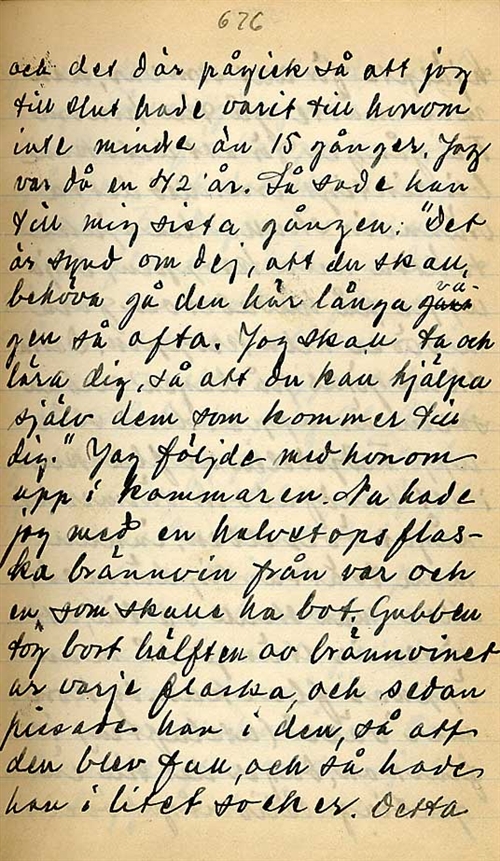 676
och det där pågick så att jag
till slut hade varit till honom
inte mindre än 15 gånger. Jag
var då en 42 år. Så sade han
till mig sista gången: "Det
är synd om dej, att du skall,
behöva gå den här långa vä-
gen så ofta. Jag skall ta och
lära dig, så att du kan hjälpa
själv dem som kommer till
dig." Jag följde med honom
upp i kammaren. Nu hade
jag med en halvstopsflas-
ka brännvin från var och
en, som skulle ha bot. Gubben
tog bort hälften av brännvinet
ur varje flaska, och sedan
pissade han i den, så att
den blev full, och så hade
han i litet socker. Detta